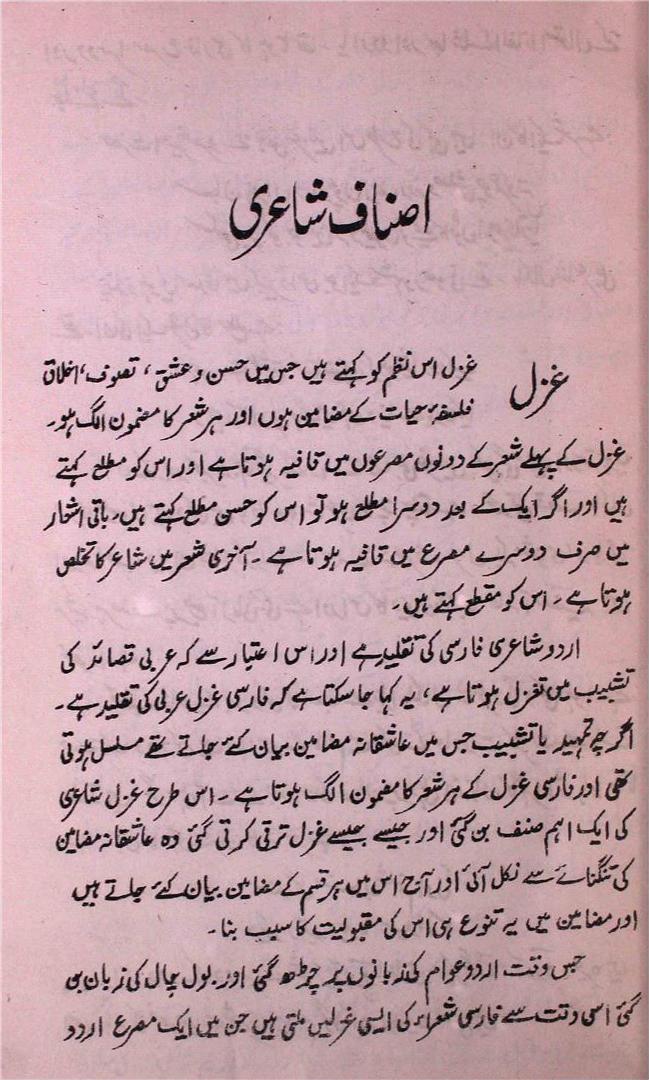 اصناف شاعری
غزل
غزل اس نظم کو کہتے ہیں جس میں حسن و عشق، تصوف، اخلاق
فلسفۂ حیات کے مضامین ہوں اور ہر شعر کا مضمون الگ ہو۔
غزل کے پہلے شعر کے دونوں مصرعوں میں قافیہ ہوتا ہے اور اس کو مطلع کہتے
ہیں اور اگر ایک کے بعد دوسرا مطلع ہو تو اس کو حسن مطلع کہتے ہیں۔ باقی اشعار
میں صرف دوسرے مصرع میں قافیہ ہوتا ہے۔ آخری شعر میں شاعر کا تخلص
ہوتا ہے۔ اس کو مقطع کہتے ہیں۔
اردو شاعری فارسی کی تقلید ہے اور اس اعتبار سے کہ عربی قصائد کی
تشبیب میں تغزل ہوتا ہے، یہ کہا جا سکتا ہے کہ فارسی غزل عربی کی تقلید ہے۔
اگرچہ تمہید یا تشبیب جس میں عاشقانہ مضامین بیان کئے جاتے تھے مسلسل ہوتی
تھی اور فارسی غزل کے ہر شعر کا مضمون الگ ہوتا ہے۔ اس طرح غزل شاعری
کی ایک اہم صنف بن گئی اور جیسے جیسے غزل ترقی کرتی گئی وہ عاشقانہ مضامین
کی تنگنائے سے نکل آئی اور آج اس میں ہر قسم کے مضامین بیان کئے جاتے ہیں
اور مضامین میں یہ تنوع ہی اس کی مقبولیت کا سبب بنا۔
جس وقت اردو عوام کی زبانوں پر چڑھ گئی اور بول چال کی زبان بن
گئی اسی وقت سے فارسی شعراء کی ایسی غزلیں ملتی ہیں جن میں ایک مصرع اردو